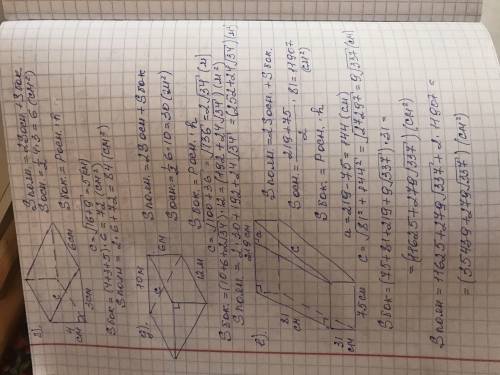 г).
4 см
3см
6см
c
Sполн = 2Sосн + Sбок.
Sосн = 1/2 4·3 = 6 (см²)
Sбок = Pосн. · h
c = √16+9 = 5(см)
Sбок = (4+3+5)·6 = 72 (см²)
Sполн = 2·6+72 = 84 (см²)
д).
10м
6м
12м
c
Sполн = 2Sосн + Sбок
Sосн = 1/2 6·10 = 30 (см²)
Sбок = Pосн. · h
c = √100+36 = √136 = 2√34 (м)
Sбок. = (10+6+2√34)·12 = (192+24√34)(м²)
Sполн = 2·30+192+24√34 = (252+24√34)(м²)
е)
81 см
31 см
75см
219 см
a
c
Sполн = 2Sосн. + Sбок.
Sосн. = 219+75/2 · 81 = 11907 (см²)
Sбок. = Pосн. · h
a = 219-75 = 144 (см)
c = √81²+144² = √27297 = 9√337 (см)
Sбок = (75+81+219+9√337)·31 =
= (11625+279√337) (см²)
Sполн = 11625+279√337+2·11907 =
= (35439+279√337) (см²)